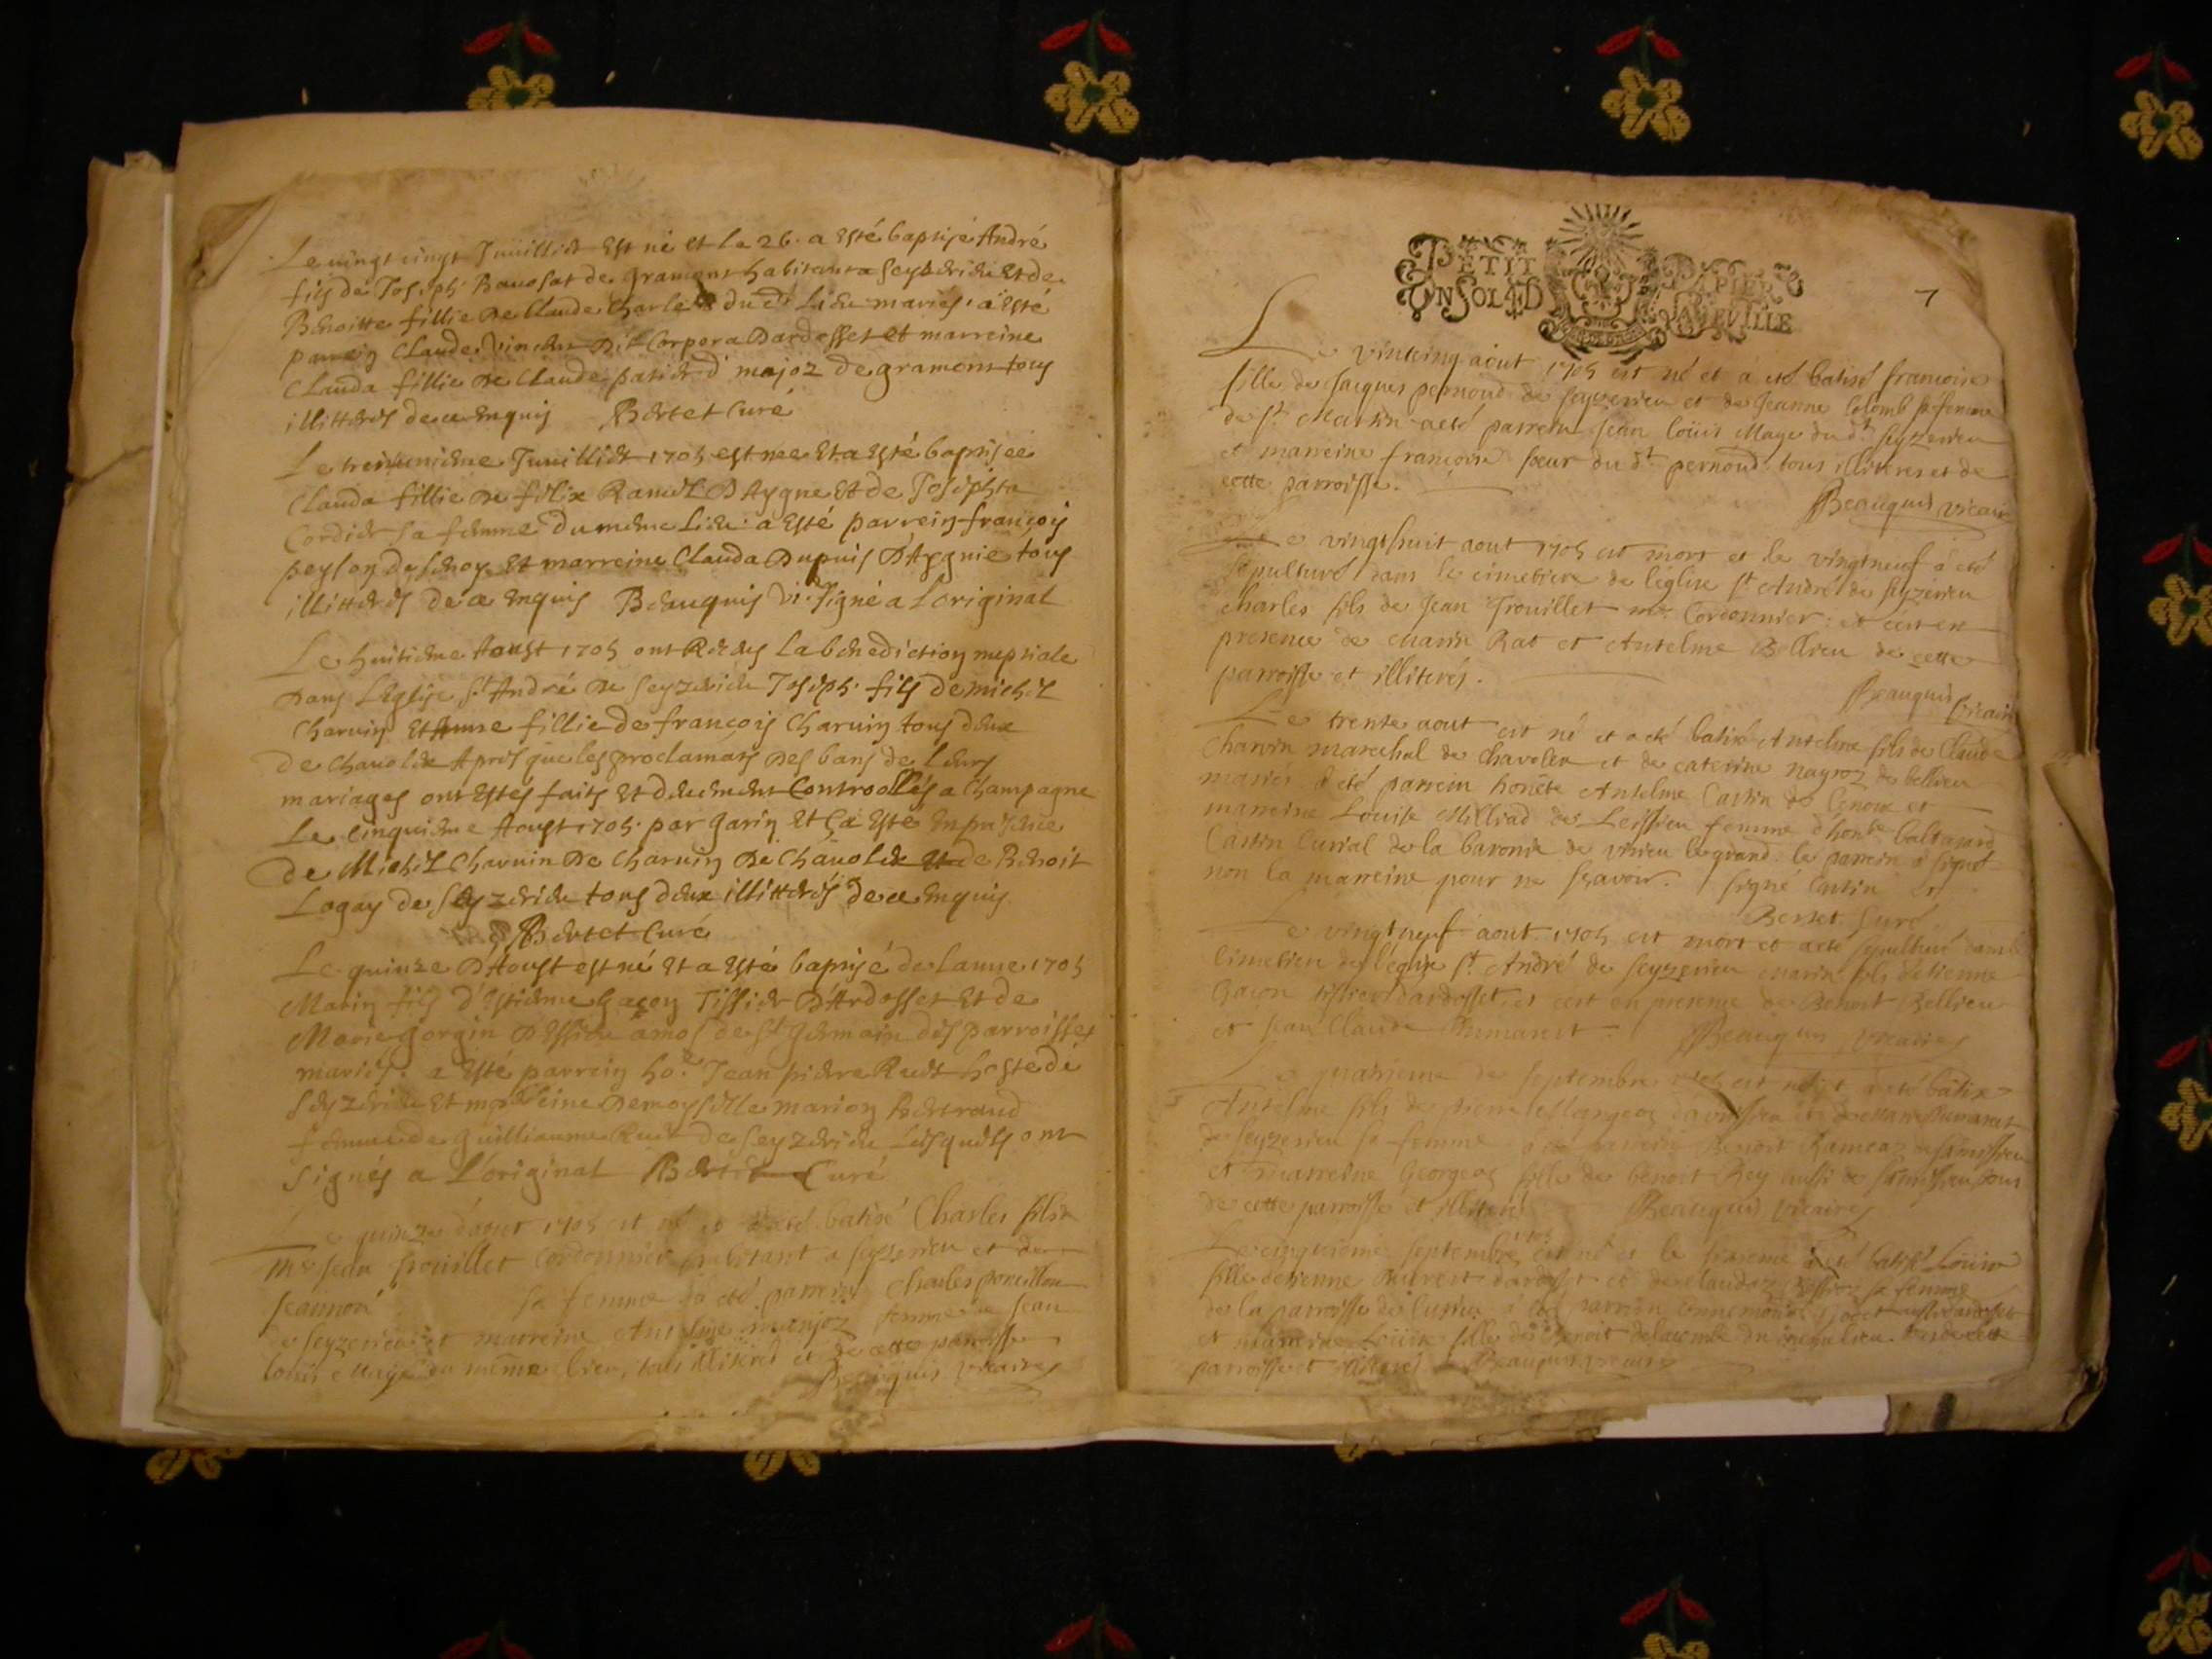 Le vingt cinqt Juillict est né et le 26. a esté baptisé André
fils de Joseph Bauosat de gramont habitant a Seyzerieu et de
Benoitte fillie de Claude Charle du dt Lieu mariés. a esté
parrein Claude Vincent dit Corpora Dardosset et marreine
Clauda fillie de Claude majoz de gramont tous
illitterés de ce enquis Bertet Curé
Le trenteunieme Juillict 1705 est née et a esté baptisée
Clauda fillie de felix Ramel D'Aygne et de Josephta
Cordier sa femme du meme Lieu. a esté parrein françois
peyson de et marreine Clauda Dupuis D'Aygnie tous
illitterés de ce enquis Beauquis vi. signé a Loriginal
Le huitieme Aoust 1705 ont Receus La benediction nuptiale
Dans L'Eglise St André de Seyzerieu Joseph fils de michel
Charuin et Anne fillie de françois Charuin tous deux
de Chauolex Aprés que les proclamats des bans de leurs
mariages ont estés faits et deuement Controollés a Champagne
Le cinquieme Aoust 1705. par garin et ça esté en presence
de Michel Charuin de Charuin de Chauolex et de Benoit
Logay de Seyzerieu tous deux illitterés de ce enquis
Bertet Curé
Le quinze D'Aoust est né et a esté baptisé de Lanne 1705
Marin fils d'Estienne gaçon Tissier D'Ardosset et de
Marie gorgin D'Essieu amos de St germain des parroisses
mariés. a esté parrein ho.e Jean pierre Ruet hoste de
Seyzerieu et marreine Demoyselle marion Bertrand
femme de guilliaume Ruet de Seyzerieu Lesquels ont
signés a L'original Bertet Curé
Le quinze d'aout 1705 est né et a eté batisé Charles fils a
mr Jean Cordonnier habitant a Seyzerieu et de
sa femme a eté parrein Charles
de Seyzerieu et marreine Antelme majoz femme de Jean
Louis Maye du même lieu, tous illiterés et de cette parroisse
Beauquis vicaire
PETIT PAPIER
UN SOL 4 D LA FEVILLE
7
Le vintcinq aout 1705 est né et a eté batisé françoise
fille de Jacques pernoud de Seyzerieu et de Jeanne Colomb sa femme
de St Martin a eté parrein Jean Loüis Maye du dt Seyzerieu
et marreine françoise sœur du dt pernoud. tous illiteres et de
cette parroisse.
Beauquis vicaire
Le vingthuit aout 1705 est mort et le vingtneuf a eté
sepulturé dans le cimetiere de l'eglise St André de Seyzerieu
Charles fils de Jean Trouillet mre Cordonnier: et c'est en
presence de Marin Rat et Antelme Bellieu de cette
parroisse et illiterés.
Beauquis vicaire
Le trente aout est né et a eté batisé Antelme fils de Claude
Charvin marechal de Chavolex et de caterine nayroz de bellieu
mariés a eté parrein honête Antelme Castin de et
marreine Louise Milliad de Leissieu femme d'honte baltazard
Castin Curial de la baronie de virieu le grand. le parrein a signé
non la marreine pour ne sçavoir. signé Castin
Bertet Curé
Le vingtneuf aout 1705 est mort et a eté sepulturé dans le
cimetiere de l'eglise St André de Seyzerieu Marin fils d'etienne
Gaçon tissier dardosset, et c'est en presence de Benoit Bellieu
et Jean Claude Dumarest Beauquis vicaire
Le quatrieme de septembre 1705 est né et a eté batisé
Antelme fils de pierre et de Marie Dumarest
de Seyzerieu sa femme a eté parrein Benoit Rameaz
et marreine Georgeaz fille de benoit Rey aussi de tous
de cette parroisse et illiterés Beauquis vicaire
Le cinquieme septembre 1705 est né et le sixieme a eté batisé Loüise
fille d'etienne dardosset et de Claudaz sa femme
de la parroisse de a eté parrein aussi dardosset
et marreine Loüise fille de Benoit delacombe du même lieu. tous de cette
parroisse et illiterés Beauquis vicaire